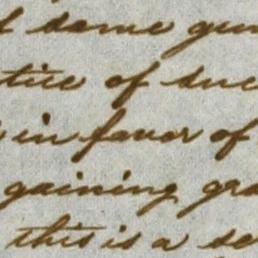 some gen
tice of suc
in favor of
gaining gra
this is a se